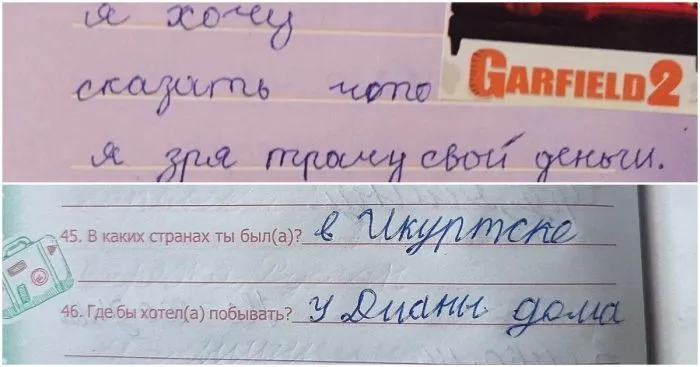 я хочу
GARFIELD 2
сказать чото
я зря трачу свой деньги.
45. В каких странах ты был(а)? в Икуртске
46. Где бы хотел(а) побывать? у Дианы дома